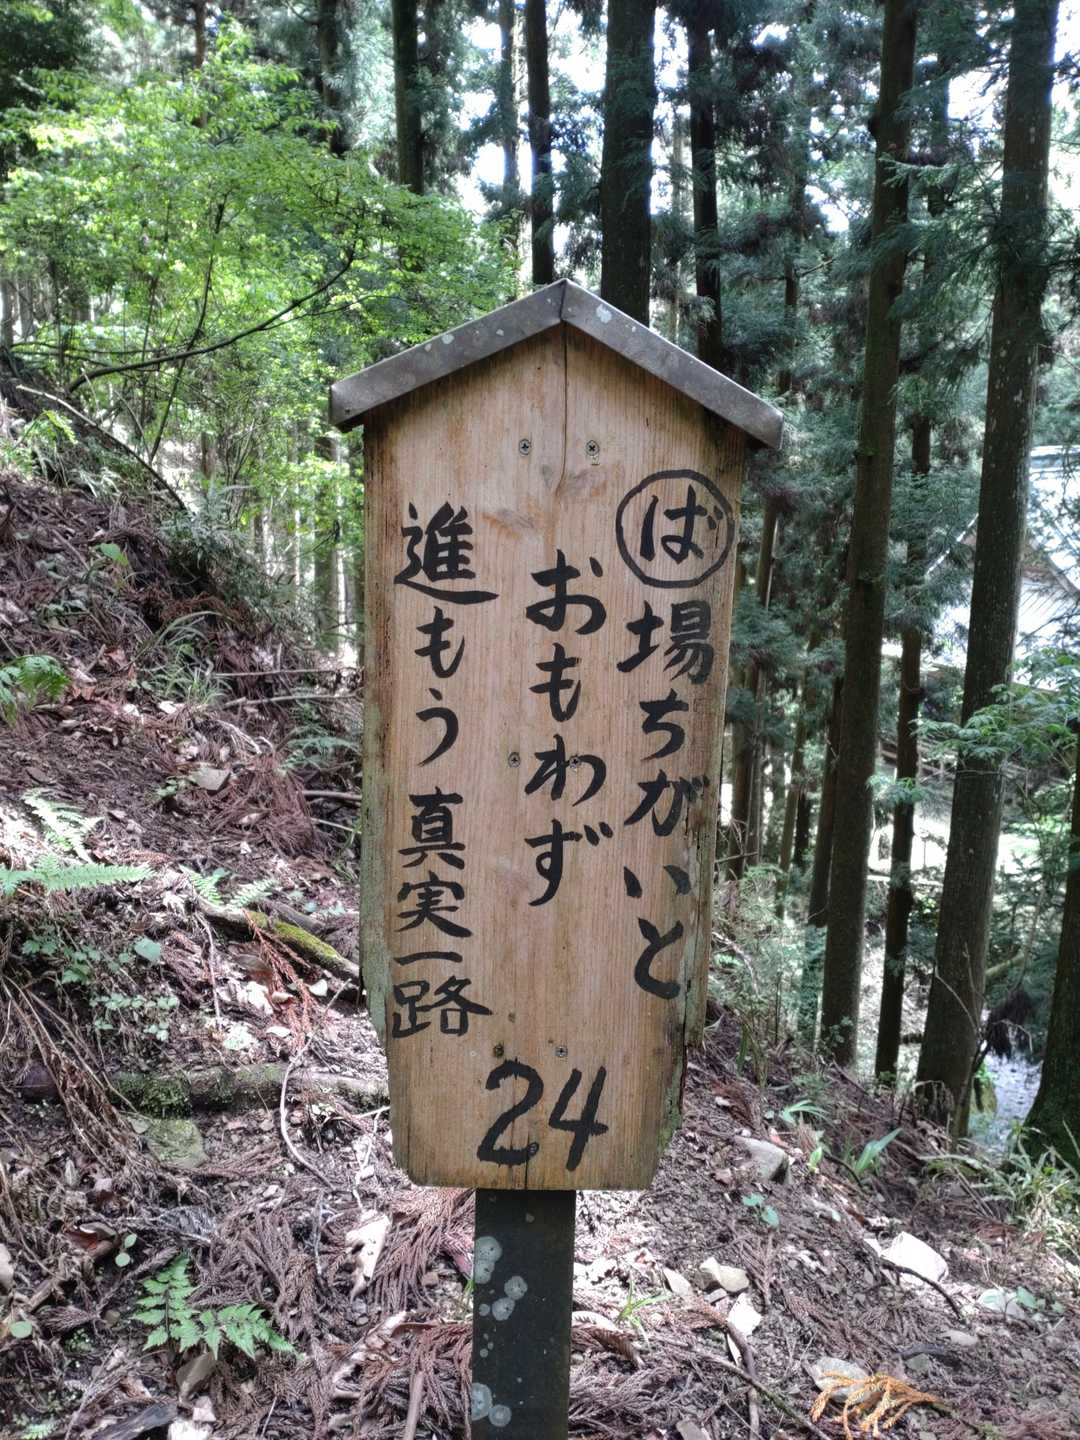 ば
場ちがいと
おもわず
進もう真実一路
24